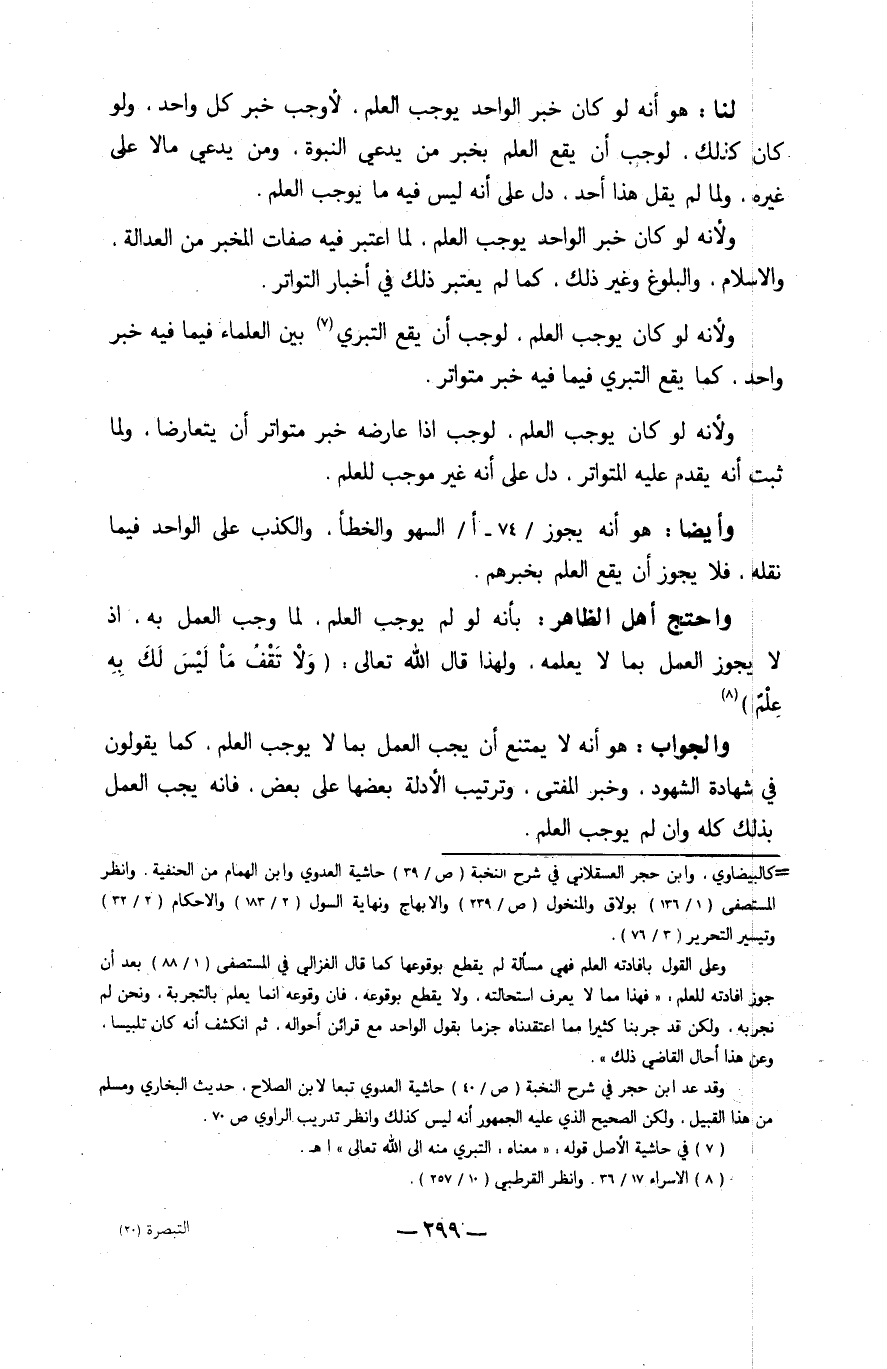 لنا : هو أنه لو كان خبر الواحد يوجب العلم ، لأوجب خبر كل واحد ، ولو
كان كذلك ، لوجب أن يقع العلم بخبر من يدعي النبوة ، ومن يدعي مالا على
غيره ، ولما لم يقل هذا أحد ، دل على أنه ليس فيه ما يوجب العلم .
ولأنه لو كان خبر الواحد يوجب العلم ، لما اعتبر فيه صفات المخبر من العدالة ،
والاسلام ، والبلوغ وغير ذلك ، كما لم يعتبر ذلك في أخبار التواتر .
ولأنه لو كان يوجب العلم ، لوجب أن يقع التبري (٧) بين العلماء فيما فيه خبر
واحد ، كما يقع التبري فيما فيه خبر متواتر .
ولأنه لو كان يوجب العلم ، لوجب اذا عارضه خبر متواتر أن يتعارضا ، ولما
ثبت أنه يقدم عليه المتواتر ، دل على أنه غير موجب للعلم .
وأيضا : هو أنه يجوز / ٧٤ ـ أ / السهو والخطأ ، والكذب على الواحد فيما
نقله ، فلا يجوز أن يقع العلم بخبرهم .
واحتج أهل الظاهر : بأنه لو لم يوجب العلم ، لما وجب العمل به ، اذ
لا يجوز العمل بما لا يعلمه ، ولهذا قال الله تعالى : ( وَلَاْ تَقْفُ مَاْ لَيْسَ لَكَ بِهِ
عِلْمٌ ) (٨)
والجواب : هو أنه لا يمتنع أن يجب العمل بما لا يوجب العلم ، كما يقولون
في شهادة الشهود ، وخبر المفتى ، وترتيب الأدلة بعضها على بعض ، فانه يجب العمل
بذلك كله وان لم يوجب العلم .
=كالبيضاوي ، وابن حجر العسقلاني في شرح النخبة ( ص / ٣٩ ) حاشية العدوي وابن الهمام من الحنفية . وانظر
المستصفى ( ١ / ١٣٦ ) بولاق والمنخول ( ص / ٢٣٩ ) والابهاج ونهاية السول ( ٢ / ١٨٣ ) والاحكام ( ٢ / ٣٢ )
وتيسير التحرير ( ٣ / ٧٦ ) .
وعلى القول بافادته العلم فهي مسألة لم يقطع بوقوعها كما قال الغزالي في المستصفى ( ١ / ٨٨ ) بعد أن
جوز افادته للعلم : « فهذا مما لا يعرف استحالته ، ولا يقطع بوقوعه ، فان وقوعه انما يعلم بالتجربة ، ونحن لم
نجربه ، ولكن قد جربنا كثيرا مما اعتقدناه جزما بقول الواحد مع قرائن أحواله ، ثم انكشف أنه كان تلبيسا ،
وعن هذا أحال القاضي ذلك » .
وقد عد ابن حجر في شرح النخبة ( ص / ٤٠ ) حاشية العدوي تبعا لابن الصلاح ، حديث البخاري ومسلم
من هذا القبيل ، ولكن الصحيح الذي عليه الجمهور أنه ليس كذلك وانظر تدريب الراوي ص ٧٠ .
( ٧ ) في حاشية الأصل قوله : « معناه : التبري منه الى الله تعالى » ا هـ .
( ٨ ) الاسراء ١٧ / ٣٦ . وانظر القرطبي ( ١٠ / ٢٥٧ ) .
— ٢٩٩ —
التبصرة (٢٠)